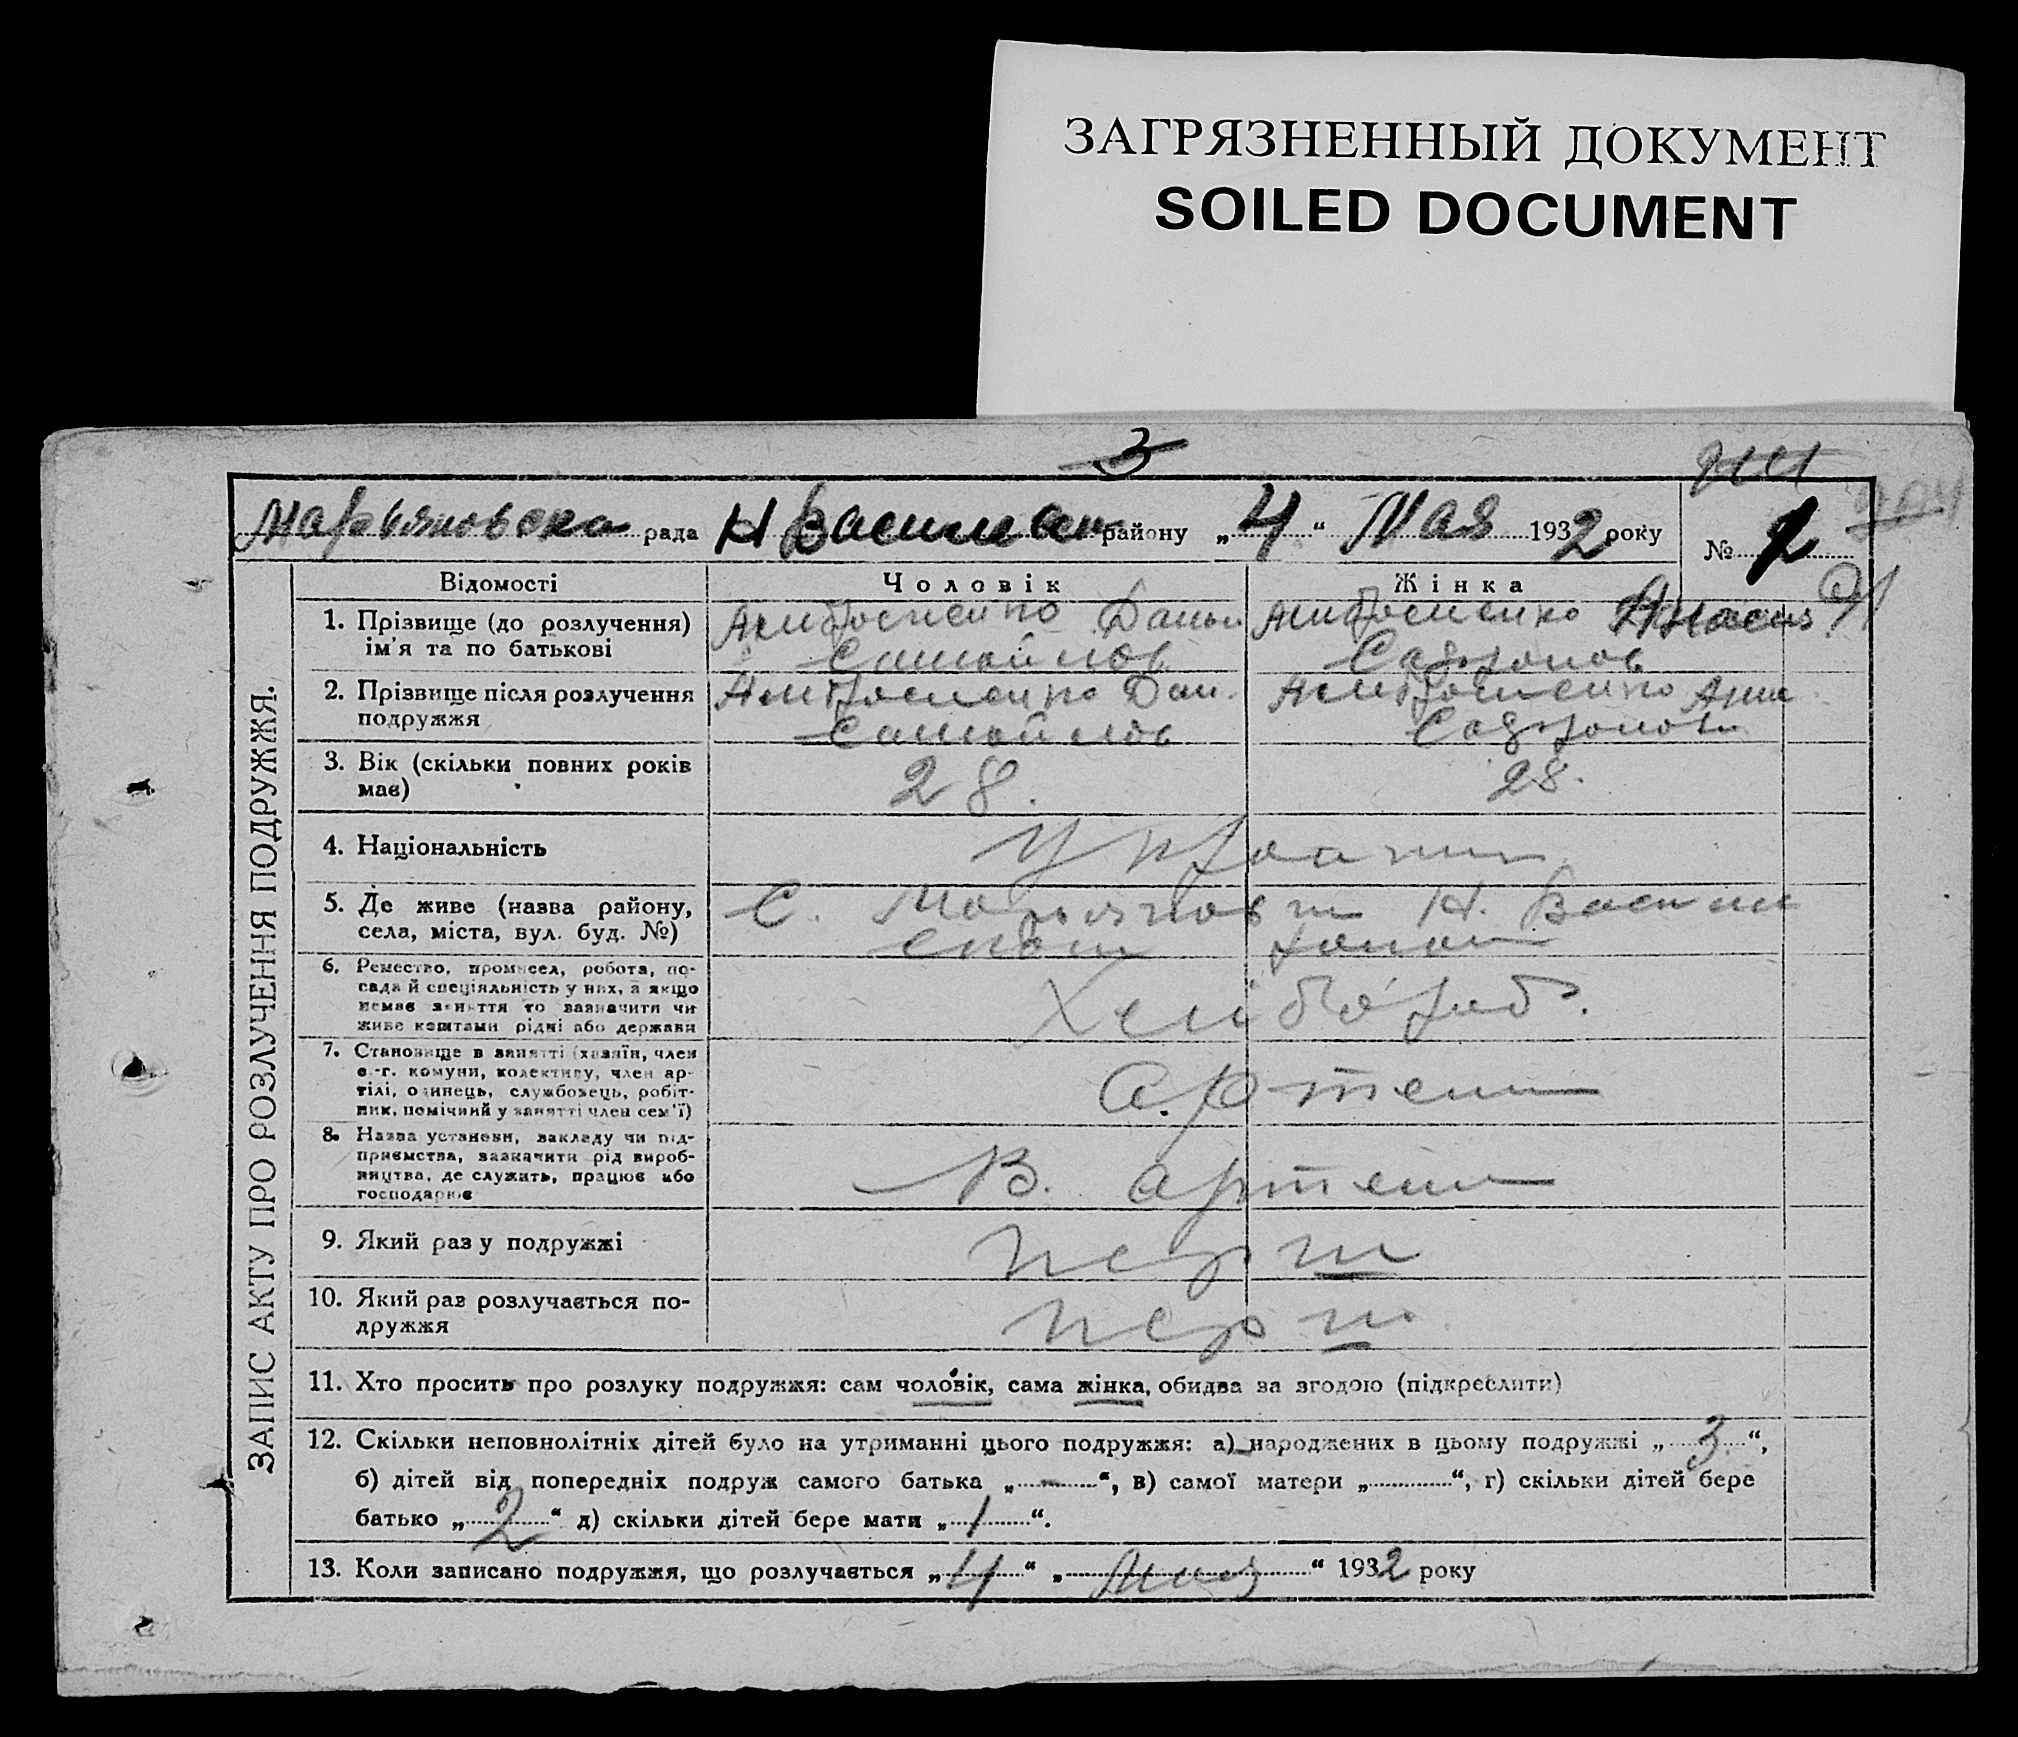 ЗАГРЯЗНЕННЫЙ ДОКУМЕНТ
SOILED DOCUMENT
3
Марьяновска рада Н Василівськ району „4“ Мая 1932 року № 2
ЗАПИС АКТУ ПРО РОЗЛУЧЕННЯ ПОДРУЖЖЯ.
Відомості Чоловік Жінка
1. Прізвище (до розлучення) ім'я та по батькові
Амбросиенко Данил
Самойлов
Амбросиенко
Сафронов
2. Прізвище після розлучення подружжя
Амбросиенко Дан.
Самойлов
Амбросиенко
3. Вік (скільки повних років має)
28.
28.
4. Національність
5. Де живе (назва району, села, міста, вул. буд. №)
С. Марьяновка Н. Васили
6. Ремество, промисел, робота, по-
сада й спеціяльність у них, а якщо
немає заняття то зазначити чи
живе коштами рідні або держави
Хлібороб.
7. Становище в занятті (хазяїн, член
с.-г. комуни, колективу, член ар-
тілі, одинець, службовець, робіт-
ник, помічний у занятті член сем'ї)
Артели
8. Назва установи, закладу чи під-
приємства, зазначити рід вироб-
ництва, де служить, працює або
господарює
В. артели
9. Який раз у подружжі
перш
10. Який раз розлучається по-
дружжя
перш
11. Хто просить про розлуку подружжя: сам чоловік, сама жінка, обидва за згодою (підкреслити)
12. Скільки неповнолітніх дітей було на утриманні цього подружжя: а) народжених в цьому подружжі „3“,
б) дітей від попередніх подруж самого батька „-“, в) самої матери „“, г) скільки дітей бере
батько „2“ д) скільки дітей бере мати „1“.
13. Коли записано подружжя, що розлучається „4“ „Мая“ 1932 року